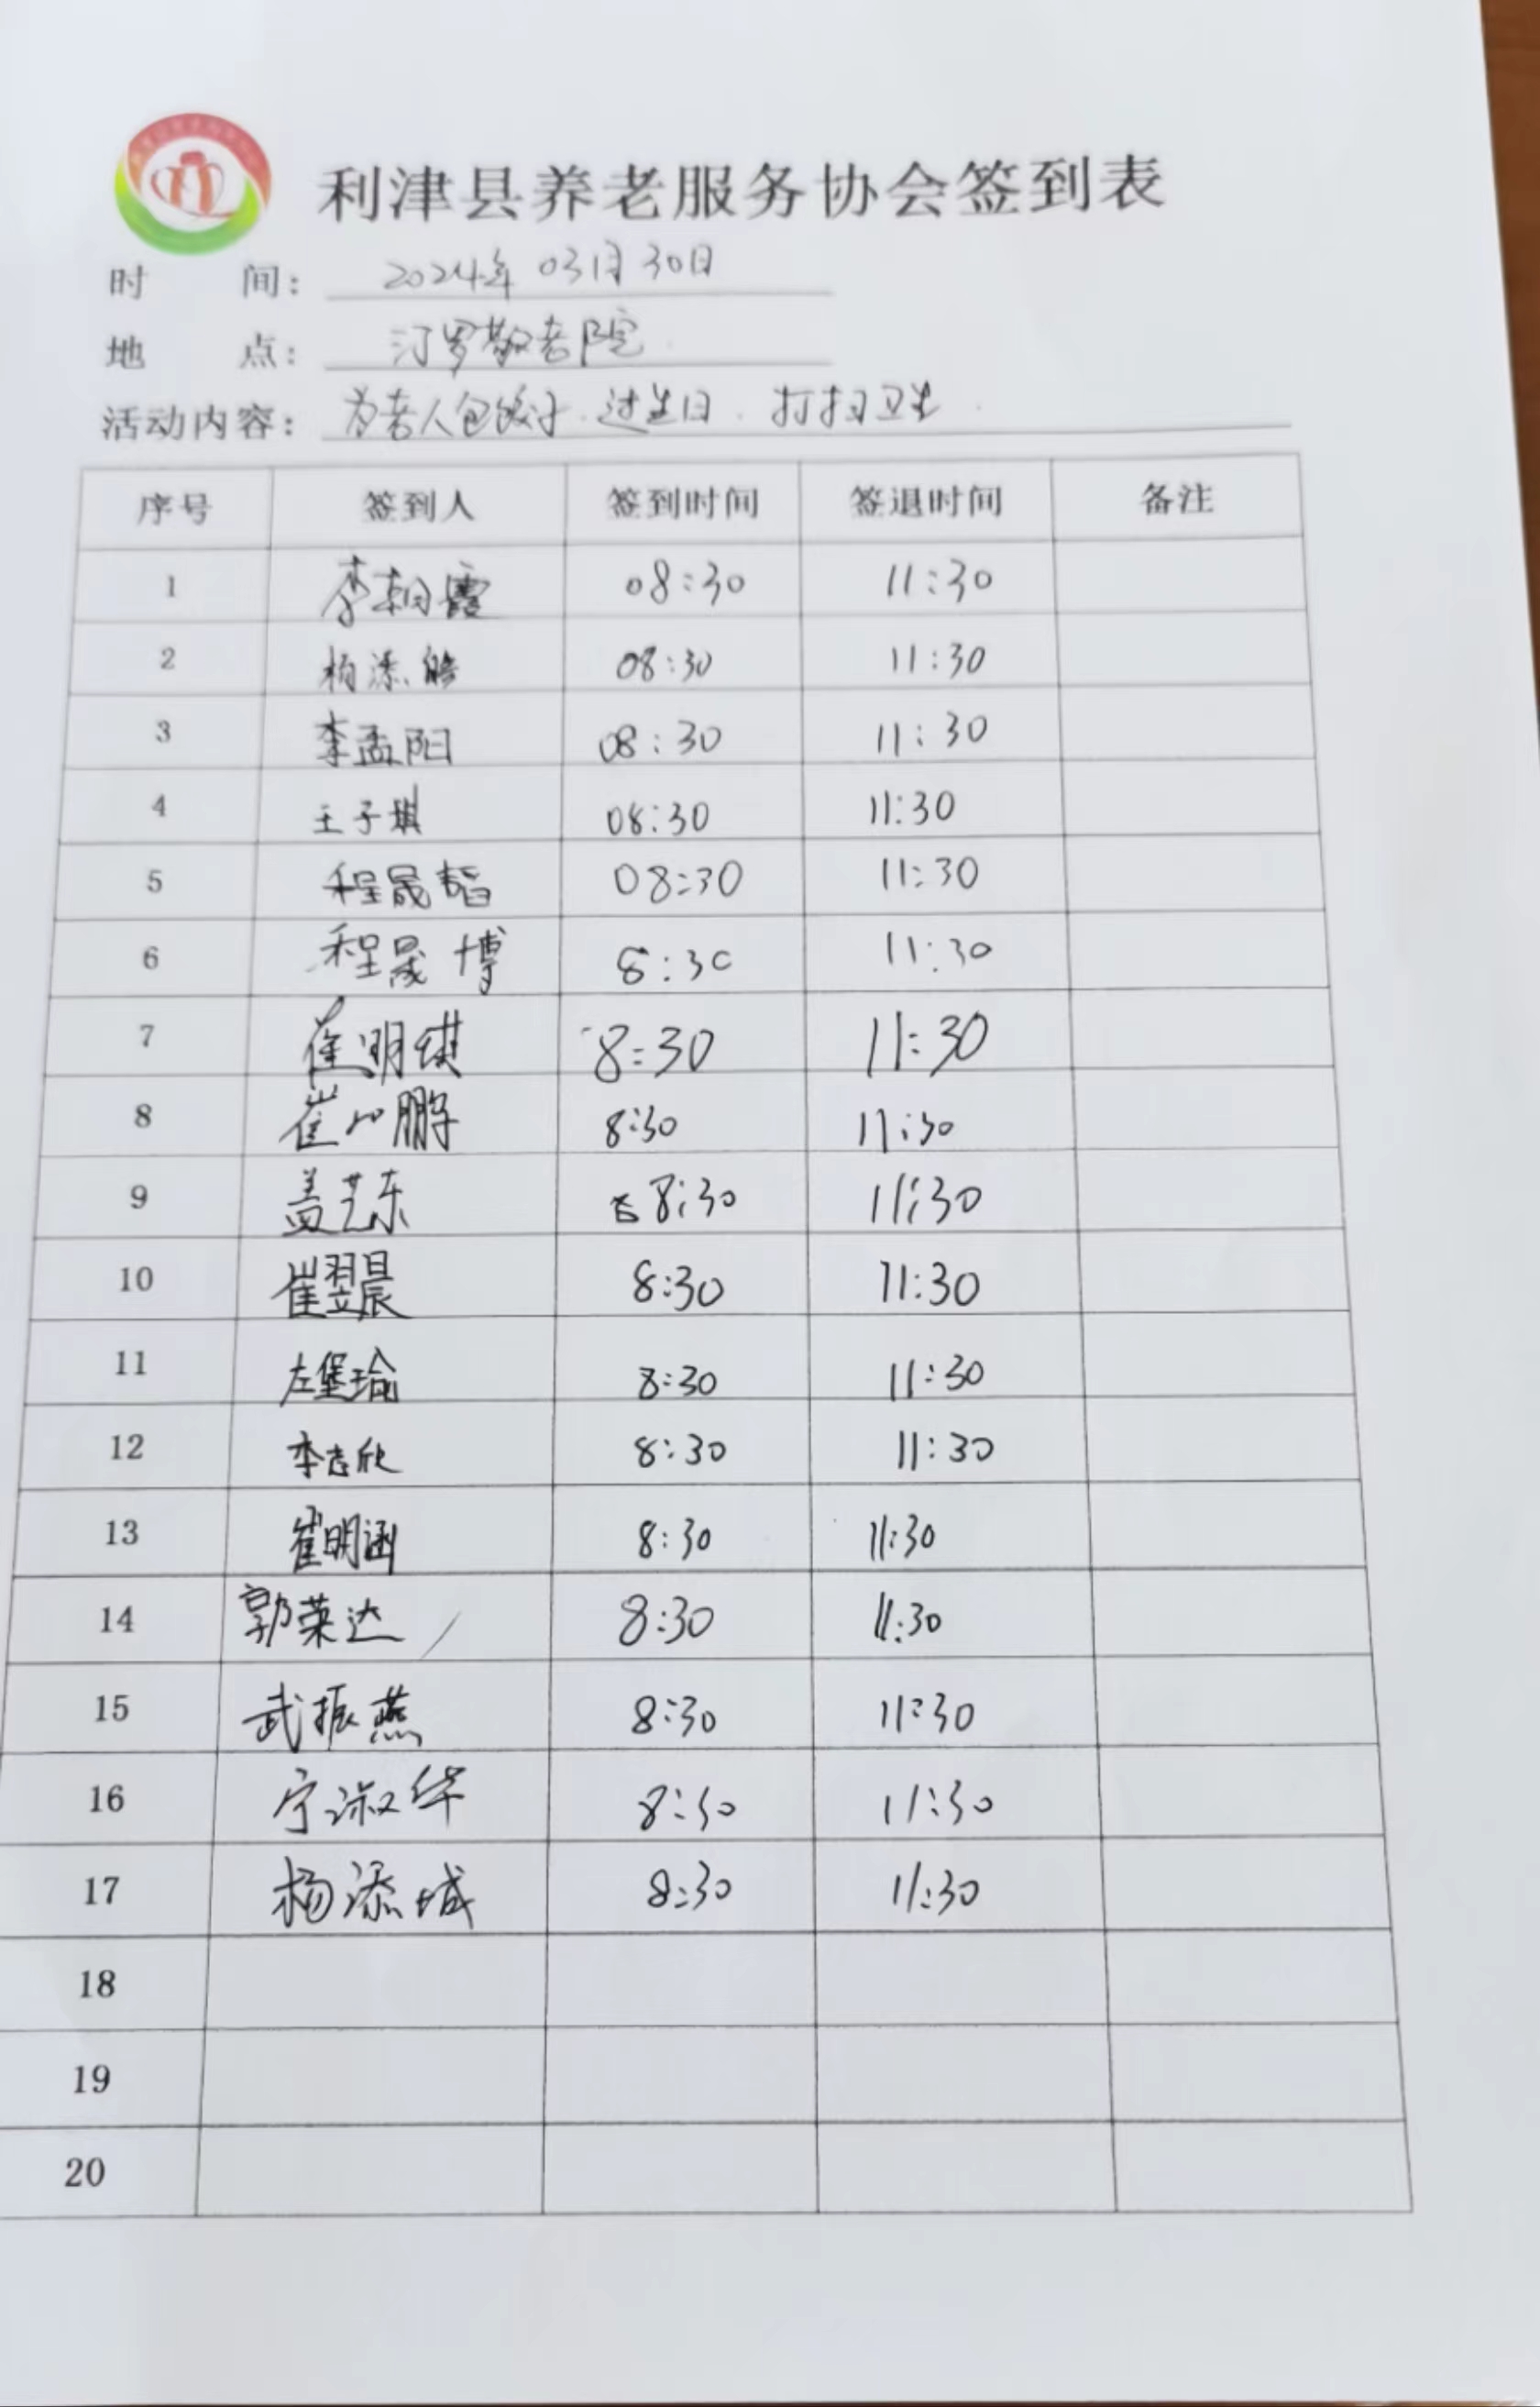 利津县养老服务协会签到表
时 间： 2024年03月30日
地 点： 汀罗敬老院
活动内容： 为老人包饺子.过生日.打扫卫生.
序号 签到人 签到时间 签退时间 备注
1 李朝霞 08:30 11:30
2 杨添皓 08:30 11:30
3 李孟阳 08:30 11:30
4 王子琪 08:30 11:30
5 程晟韬 08:30 11:30
6 程晟博 8:30 11:30
7 崔明琪 8:30 11:30
8 崔 鹏 8:30 11:30
9 盖艺东 8:30 11:30
10 崔翌晨 8:30 11:30
11 左堡瑜 8:30 11:30
12 李志欣 8:30 11:30
13 崔明涵 8:30 11:30
14 郭荣达 8:30 11:30
15 武振燕 8:30 11:30
16 宁淑华 8:30 11:30
17 杨添城 8:30 11:30
18
19
20